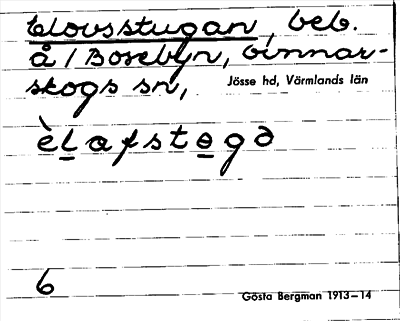 Elovsstugan, beb.
å / Bosebyn, Gunnar-
skogs sn,
Jösse hd, Värmlands län
èlafstegə
6
Gösta Bergman 1913–14